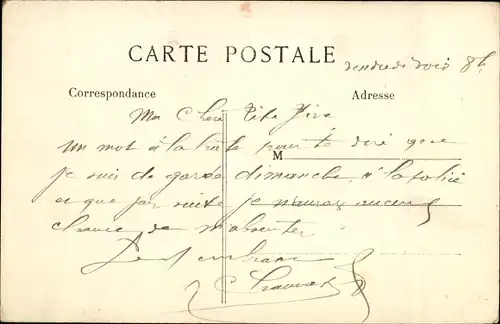 CARTE POSTALE
vendredi soir 8h
Correspondance
Adresse
Ma Chère Tite
Un mot à la hâte pour te dire que
M
je suis de garde dimanche, à la police
et que par suite je n'aurai aucune
chance de m'absenter